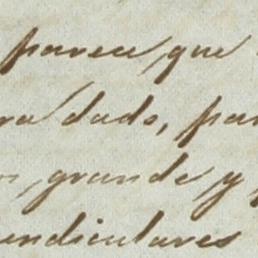 parece, que
dado, par
grande y
endiculares